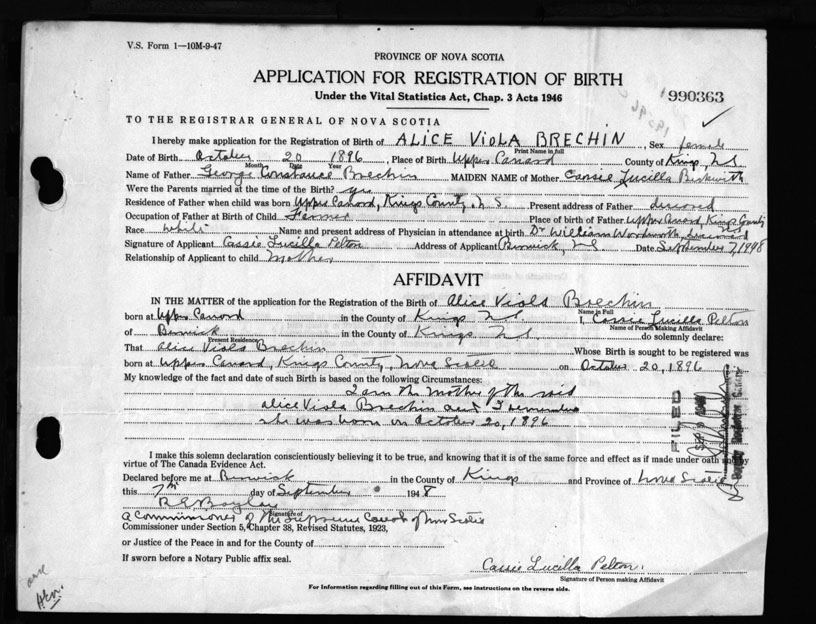 V.S. Form 1—10M-9-47
PROVINCE OF NOVA SCOTIA
APPLICATION FOR REGISTRATION OF BIRTH
Under the Vital Statistics Act, Chap. 3 Acts 1946
990363
TO THE REGISTRAR GENERAL OF NOVA SCOTIA
I hereby make application for the Registration of Birth of ALICE VIOLA BRECHIN, Sex female
Print Name in full
Date of Birth October 20 1896, Place of Birth Upper Canard County of Kings, N.S.
Month Date Year
Name of Father George Constance Brechin MAIDEN NAME of Mother Cassie Lucilla
Were the Parents married at the time of the Birth? yes
Residence of Father when child was born Upper Canard, Kings County, N.S. Present address of Father deceased
Occupation of Father at Birth of Child Farmer Place of birth of Father Upper Canard, Kings County
N.S.
Race white Name and present address of Physician in attendance at birth Dr William Woodworth, deceased
Signature of Applicant Cassie Lucilla Pelton Address of Applicant Berwick, N.S. Date September 7, 1948
Relationship of Applicant to child Mother
AFFIDAVIT
IN THE MATTER of the application for the Registration of the Birth of Alice Viola Brechin
Name in Full
born at Upper Canard in the County of Kings N.S. I, Cassie Lucilla Pelton
Name of Person Making Affidavit
of Berwick in the County of Kings N.S. do solemnly declare:
Present Residence
That Alice Viola Brechin Whose Birth is sought to be registered was
born at Upper Canard, Kings County, Nova Scotia on October 20, 1896
My knowledge of the fact and date of such Birth is based on the following Circumstances:
I am the mother of the said
Alice Viola Brechin and I remember
she was born on October 20, 1896
FILED
I make this solemn declaration conscientiously believing it to be true, and knowing that it is of the same force and effect as if made under oath and by
virtue of The Canada Evidence Act.
Declared before me at Berwick in the County of Kings and Province of Nova Scotia
this 7th day of September 1948
Signature of
A Commissioner of the Supreme Court of Nova Scotia
Commissioner under Section 5, Chapter 38, Revised Statutes, 1923,
or Justice of the Peace in and for the County of
If sworn before a Notary Public affix seal.
Cassie Lucilla Pelton.
Signature of Person making Affidavit
For Information regarding filling out of this Form, see instructions on the reverse side.